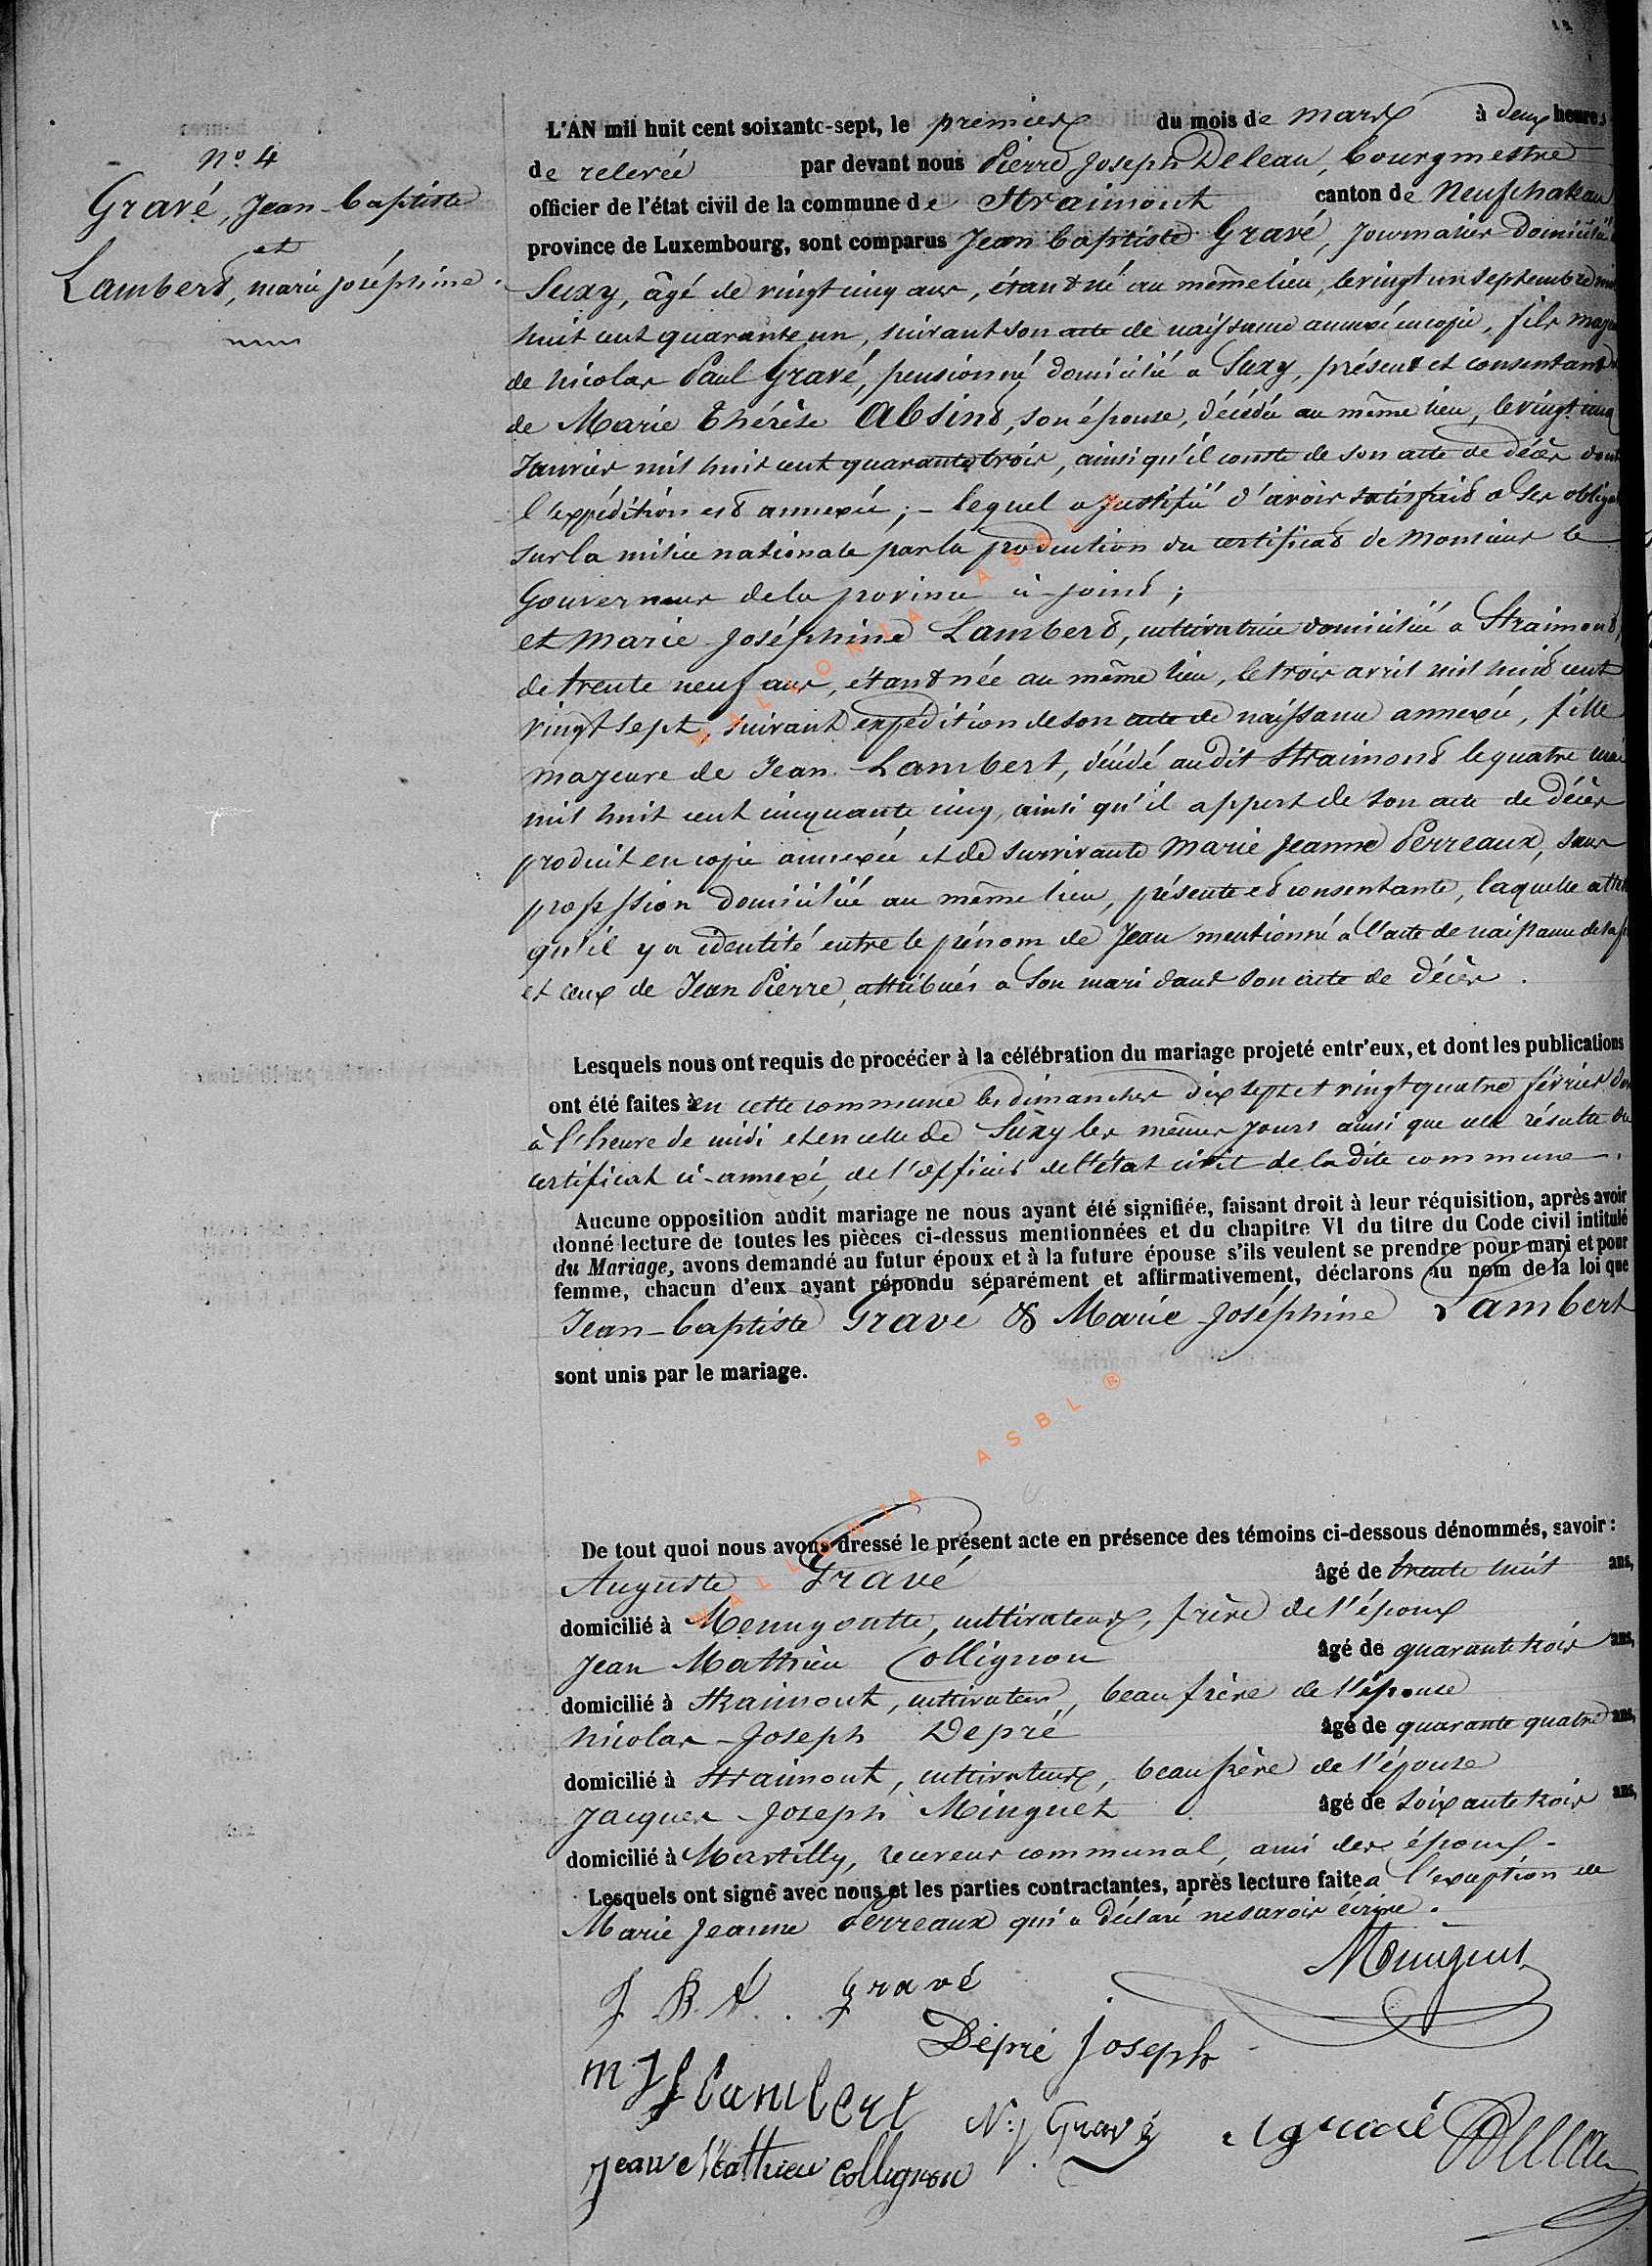 N° 4
Gravé, Jean-Baptiste
et
Lambert, marie joséphine
L'AN mil huit cent soixante-sept, le premier du mois de mars à deux heures
de relevée par devant nous Pierre Joseph Deleau, bourgmestre
officier de l'état civil de la commune de Straimont canton de Neufchateau
province de Luxembourg, sont comparus Jean baptiste Gravé, journalier domicilié
Suxy, âgé de vingt cinq ans, étant né au même lieu, le vingt un septembre mil
huit cent quarante un, suivant son acte de naissance annexé en copie, fils majeur
de Nicolas Paul Gravé, pensionné domicilié a Suxy, présent et consentant
de Marie Thérèse Absint, son épouse, décédée au même lieu, le vingt cinq
Janvier mil huit cent quarante trois, ainsi qu'il conste de son acte de décès dont
l'expédition est annexée ; - lequel a justifié d'avoir satisfait a ses obliga
sur la milice nationale par la production du certificat de Monsieur le
Gouverneur de la province ci-joint ;
et Marie Joséphine Lambert, cultivatrice domiciliée a Straimont,
de trente neuf ans, étant née au même lieu, le trois avril mil huit cent
vingt sept, suivant expédition de son acte de naissance annexée, fille
majeure de Jean Lambert, décédé audit Straimont le quatre mai
mil huit cent cinquante cinq, ainsi qu'il appert de son acte de décès
produit en copie annexée et de survivante Marie Jeanne Perreaux, sans
profession domiciliée au même lieu, présente et consentante, laquelle atte
qu'il y a identité entre le prénom de Jean mentionné a l'acte de naissance de sa f
et ceux de Jean Pierre, attribués a son mari dans son acte de décès.
Lesquels nous ont requis de procéder à la célébration du mariage projeté entr'eux, et dont les publications
ont été faites en cette commune les dimanches dix sept et vingt quatre février der
à l'heure de midi et en celle de Suxy les mêmes jours ainsi que cela résulte du
certificat ci-annexé, de l'officier de l'état civil de la dite commune.
Aucune opposition audit mariage ne nous ayant été signifiée, faisant droit à leur réquisition, après avoir
donné lecture de toutes les pièces ci-dessus mentionnées et du chapitre VI du titre du Code civil intitulé
du Mariage, avons demandé au futur époux et à la future épouse s'ils veulent se prendre pour mari et pour
femme, chacun d'eux ayant répondu séparément et affirmativement, déclarons au nom de la loi que
Jean-baptiste Gravé & Marie Joséphine Lambert
sont unis par le mariage.
De tout quoi nous avons dressé le présent acte en présence des témoins ci-dessous dénommés, savoir :
Auguste Gravé âgé de trente huit ans,
domicilié à Menugoutte, cultivateur, frère de l'époux
Jean Mathieu Collignon âgé de quarante trois ans,
domicilié à Straimont, cultivateur, beau frère de l'épouse
Nicolas-Joseph Depré âgé de quarante quatre ans,
domicilié à Straimont, cultivateur, beau frère de l'épouse
Jacques-Joseph Minguet âgé de soixante trois ans,
domicilié à Martilly, receveur communal, ami des époux.
Lesquels ont signé avec nous et les parties contractantes, après lecture faite a l'exception de
Marie Jeanne Perreaux qui a déclaré ne savoir écrire.
J B t. Gravé
Depré Joseph
M J Lambert
N. J Gravé
Jean Mathieu Collignon
WALLONIA ASBL
WALLONIA ASBL ®